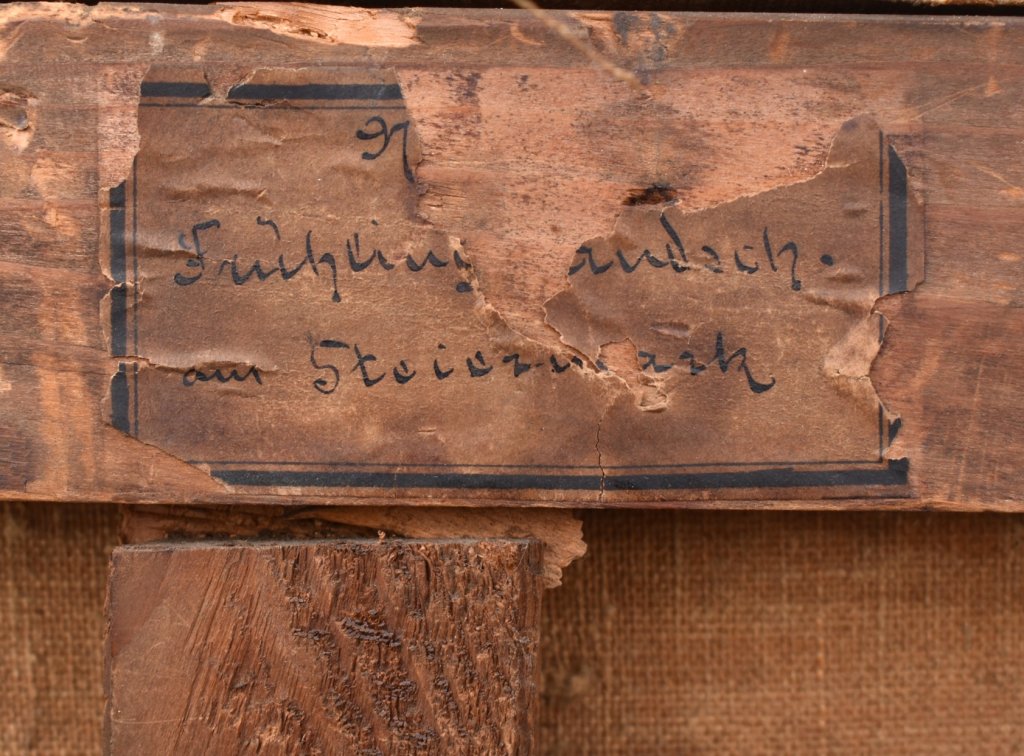 N
Frühling andsch.
aus Steiermark